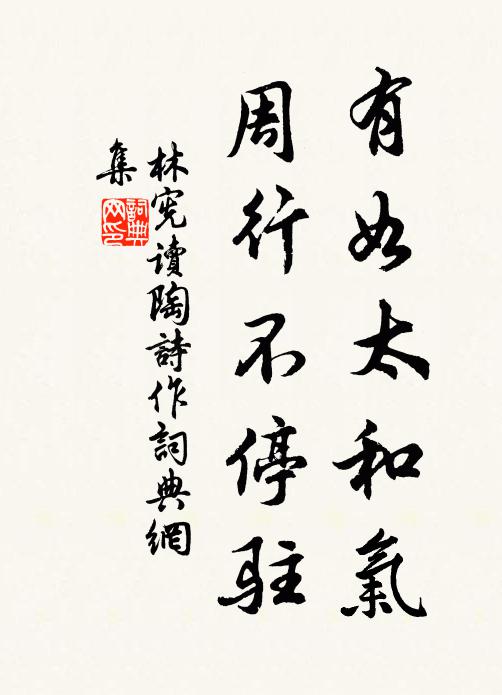 有如太和氣
周行不停駐
林憲讀陶詩作詞典網
集
詞典
网印